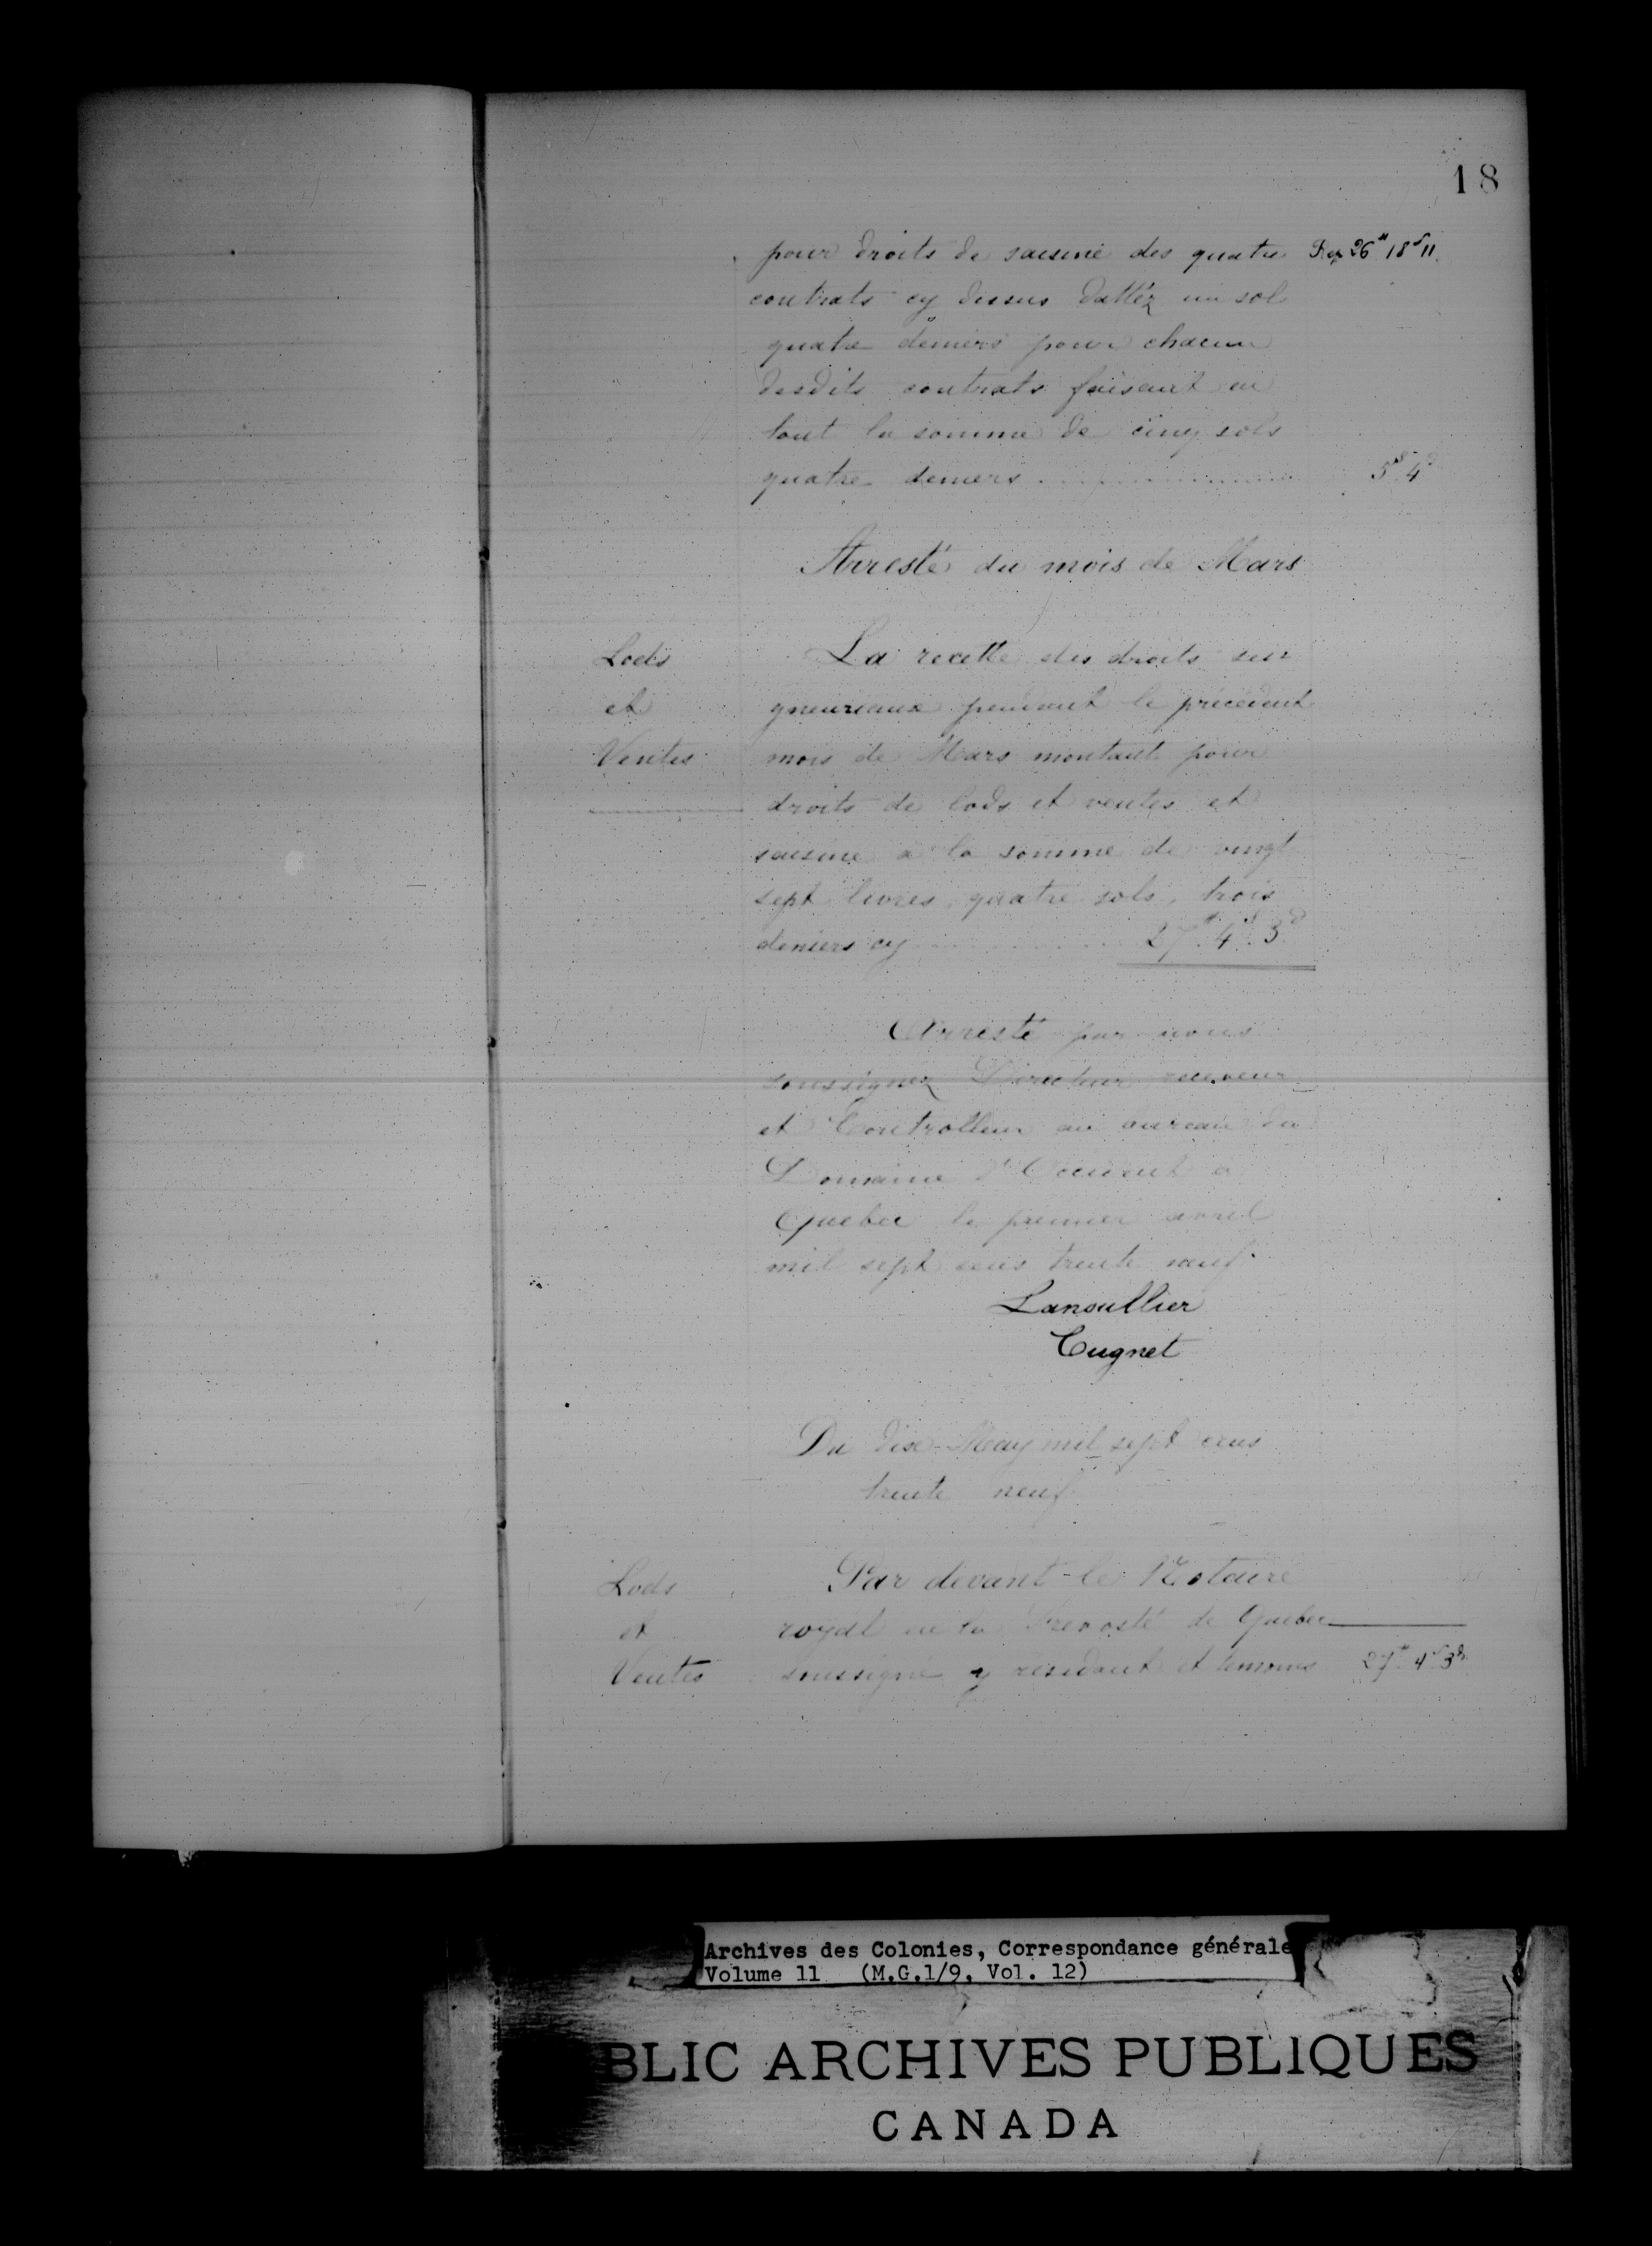 18
pour droits de saisine des quatre Rep 26# 18s 11
contrats cy dessus dattéz un sol
quatre deniers pour chacun
desdits contrats faisant en
tout la somme de cinq sols
quatre deniers ........ 5s 4d
Arresté du mois de Mars
Lods La recette des droits sei
et gneuriaux pendant le précédent
Ventes mois de Mars montant pour
droits de lods et ventes et
saisine à la somme de vingt
sept livres, quatre sols, trois
deniers cy ........ 27# 4s 3d
Arresté par nous
soussignez Directeur receveur
et Controlleur au bureau du
Domaine d'Occident a
Quebec le premier avril
mil sept cens trente neuf.
Lanoullier
Cugnet
Du dix May mil sept cens
trente neuf
Lods Par devant le Notaire
et royal en la Prevosté de Quebec
Ventes soussigné y residant et temoins 27# 4s 3d
Archives des Colonies, Correspondance générale
Volume 11 (M.G.1/9, Vol. 12)
BLIC ARCHIVES PUBLIQUES
CANADA